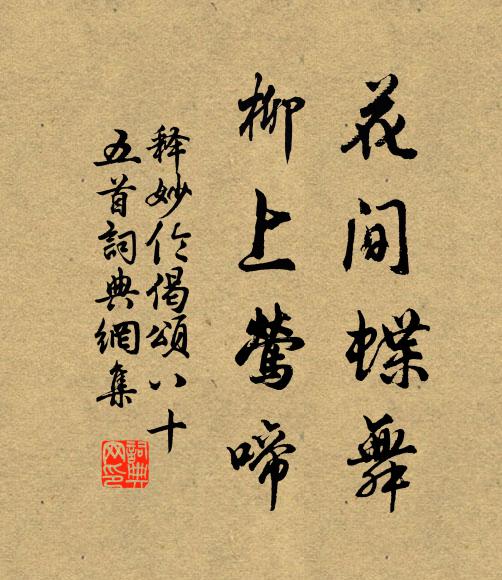 花间蝶舞
柳上莺啼
释妙伦偈颂八十
五首词典網集
詞典
网印